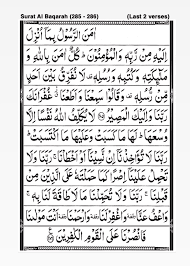 Surat Al Baqarah (285 - 286) (Last 2 verses)
اٰمَنَ الرَّسُوْلُ بِمَاۤ اُنْزِلَ
اِلَيْهِ مِنْ رَّبِّهٖ وَالْمُؤْمِنُوْنَ ؕ كُلٌّ اٰمَنَ بِاللّٰهِ وَ
مَلٰٓئِكَتِهٖ وَكُتُبِهٖ وَرُسُلِهٖ ۟ لَا نُفَرِّقُ بَيْنَ اَحَدٍ
مِّنْ رُّسُلِهٖ ۟ وَقَالُوْا سَمِعْنَا وَاَطَعْنَا ۫ غُفْرَانَكَ
رَبَّنَا وَاِلَيْكَ الْمَصِيْرُ ﴿۲۸۵﴾ لَا يُكَلِّفُ اللّٰهُ نَفْسًا اِلَّا
وُسْعَهَا ؕ لَهَا مَا كَسَبَتْ وَعَلَيْهَا مَا اكْتَسَبَتْ ؕ
رَبَّنَا لَا تُؤَاخِذْنَاۤ اِنْ نَّسِيْنَاۤ اَوْ اَخْطَاْنَا ۚ رَبَّنَا وَلَا
تَحْمِلْ عَلَيْنَاۤ اِصْرًا كَمَا حَمَلْتَهٗ عَلَى الَّذِيْنَ مِنْ
قَبْلِنَا ۚ رَبَّنَا وَلَا تُحَمِّلْنَا مَا لَا طَاقَةَ لَنَا بِهٖ ۚ
وَاعْفُ عَنَّا ۥ وَاغْفِرْ لَنَا ۥ وَارْحَمْنَا ۥ اَنْتَ مَوْلٰىنَا
فَانْصُرْنَا عَلَى الْقَوْمِ الْكٰفِرِيْنَ ﴿۲۸۶﴾